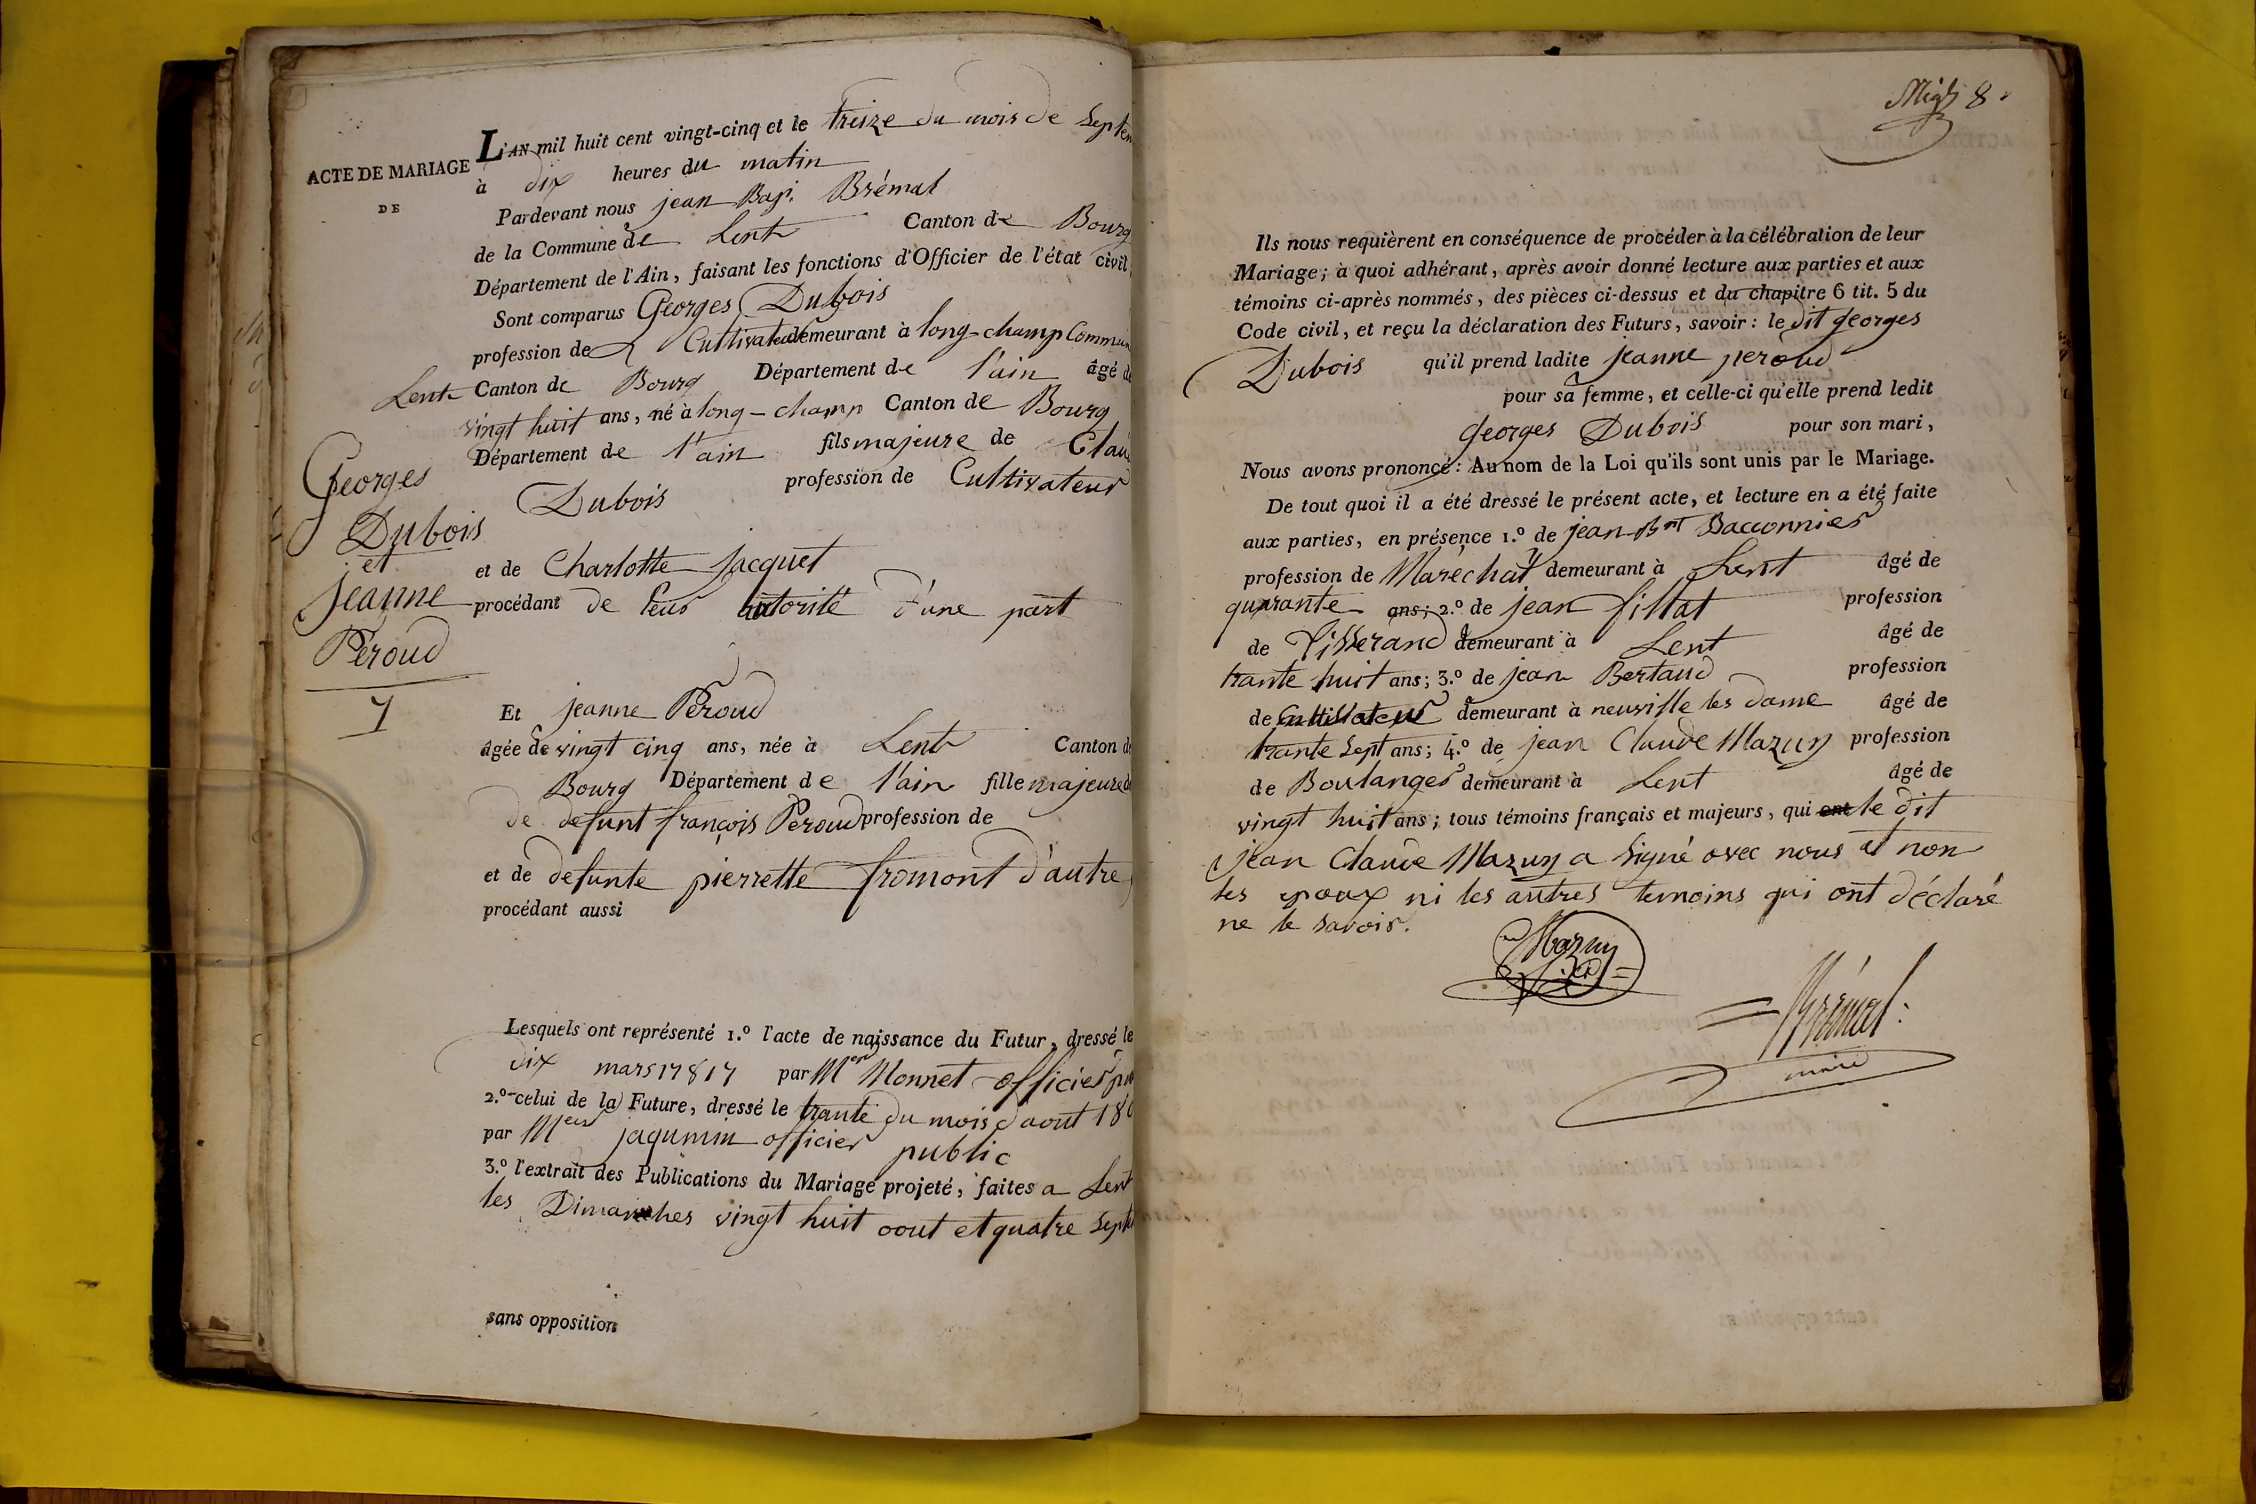 ACTE DE MARIAGE
DE
Georges
Dubois
et
Jeanne
Péroud
7
L'AN mil huit cent vingt-cinq et le treize du mois de Septem
à dix heures du matin
Pardevant nous jean Bap. Brémal
de la Commune de Lent Canton de Bourg
Département de l'Ain, faisant les fonctions d'Officier de l'état civil
Sont comparus Georges Dubois
profession de Cultivateur demeurant à long-champ Commun
Lent Canton de Bourg Département de l'ain âgé de
vingt huit ans, né à long-champ Canton de Bourg
Département de l'ain fils majeure de Clau
Dubois profession de Cultivateur
et de Charlotte Jacquet
procédant de leur autorité d'une part
Et jeanne Péroud
âgée de vingt cinq ans, née à Lent Canton de
Bourg Département de l'ain fille majeure de
de defunt françois Péroud profession de
et de defunte pierrette fromont d'autre
procédant aussi
Lesquels ont représenté 1.º l'acte de naissance du Futur, dressé le
dix mars 17817 par Monnet officier pu
2.º celui de la Future, dressé le trante du mois d'aout 180
par jaqumin officier public
3.º l'extrait des Publications du Mariage projeté, faites a Lent
les Dimanches vingt huit oout et quatre Septe
sans opposition
8
Ils nous requièrent en conséquence de procéder à la célébration de leur
Mariage; à quoi adhérant, après avoir donné lecture aux parties et aux
témoins ci-après nommés, des pièces ci-dessus et du chapitre 6 tit. 5 du
Code civil, et reçu la déclaration des Futurs, savoir: le dit georges
Dubois qu'il prend ladite jeanne peroud
pour sa femme, et celle-ci qu'elle prend ledit
georges Dubois pour son mari,
Nous avons prononcé: Au nom de la Loi qu'ils sont unis par le Mariage.
De tout quoi il a été dressé le présent acte, et lecture en a été faite
aux parties, en présence 1.º de jean Bnt Bacconnier
profession de Maréchal demeurant à Lent âgé de
quarante ans; 2.º de jean fillat profession
de Tisserand demeurant à Lent âgé de
trante huit ans; 3.º de jean Bertaud profession
de Cultivateur demeurant à neuville les dame âgé de
trante sept ans; 4.º de jean Claude Mazuy profession
de Boulanger demeurant à Lent âgé de
vingt huit ans; tous témoins français et majeurs, qui ont le dit
jean Claude Mazuy a signé avec nous et non
les epoux ni les autres temoins qui ont déclaré
ne le savoir.
Mazuy
Brémal
maire